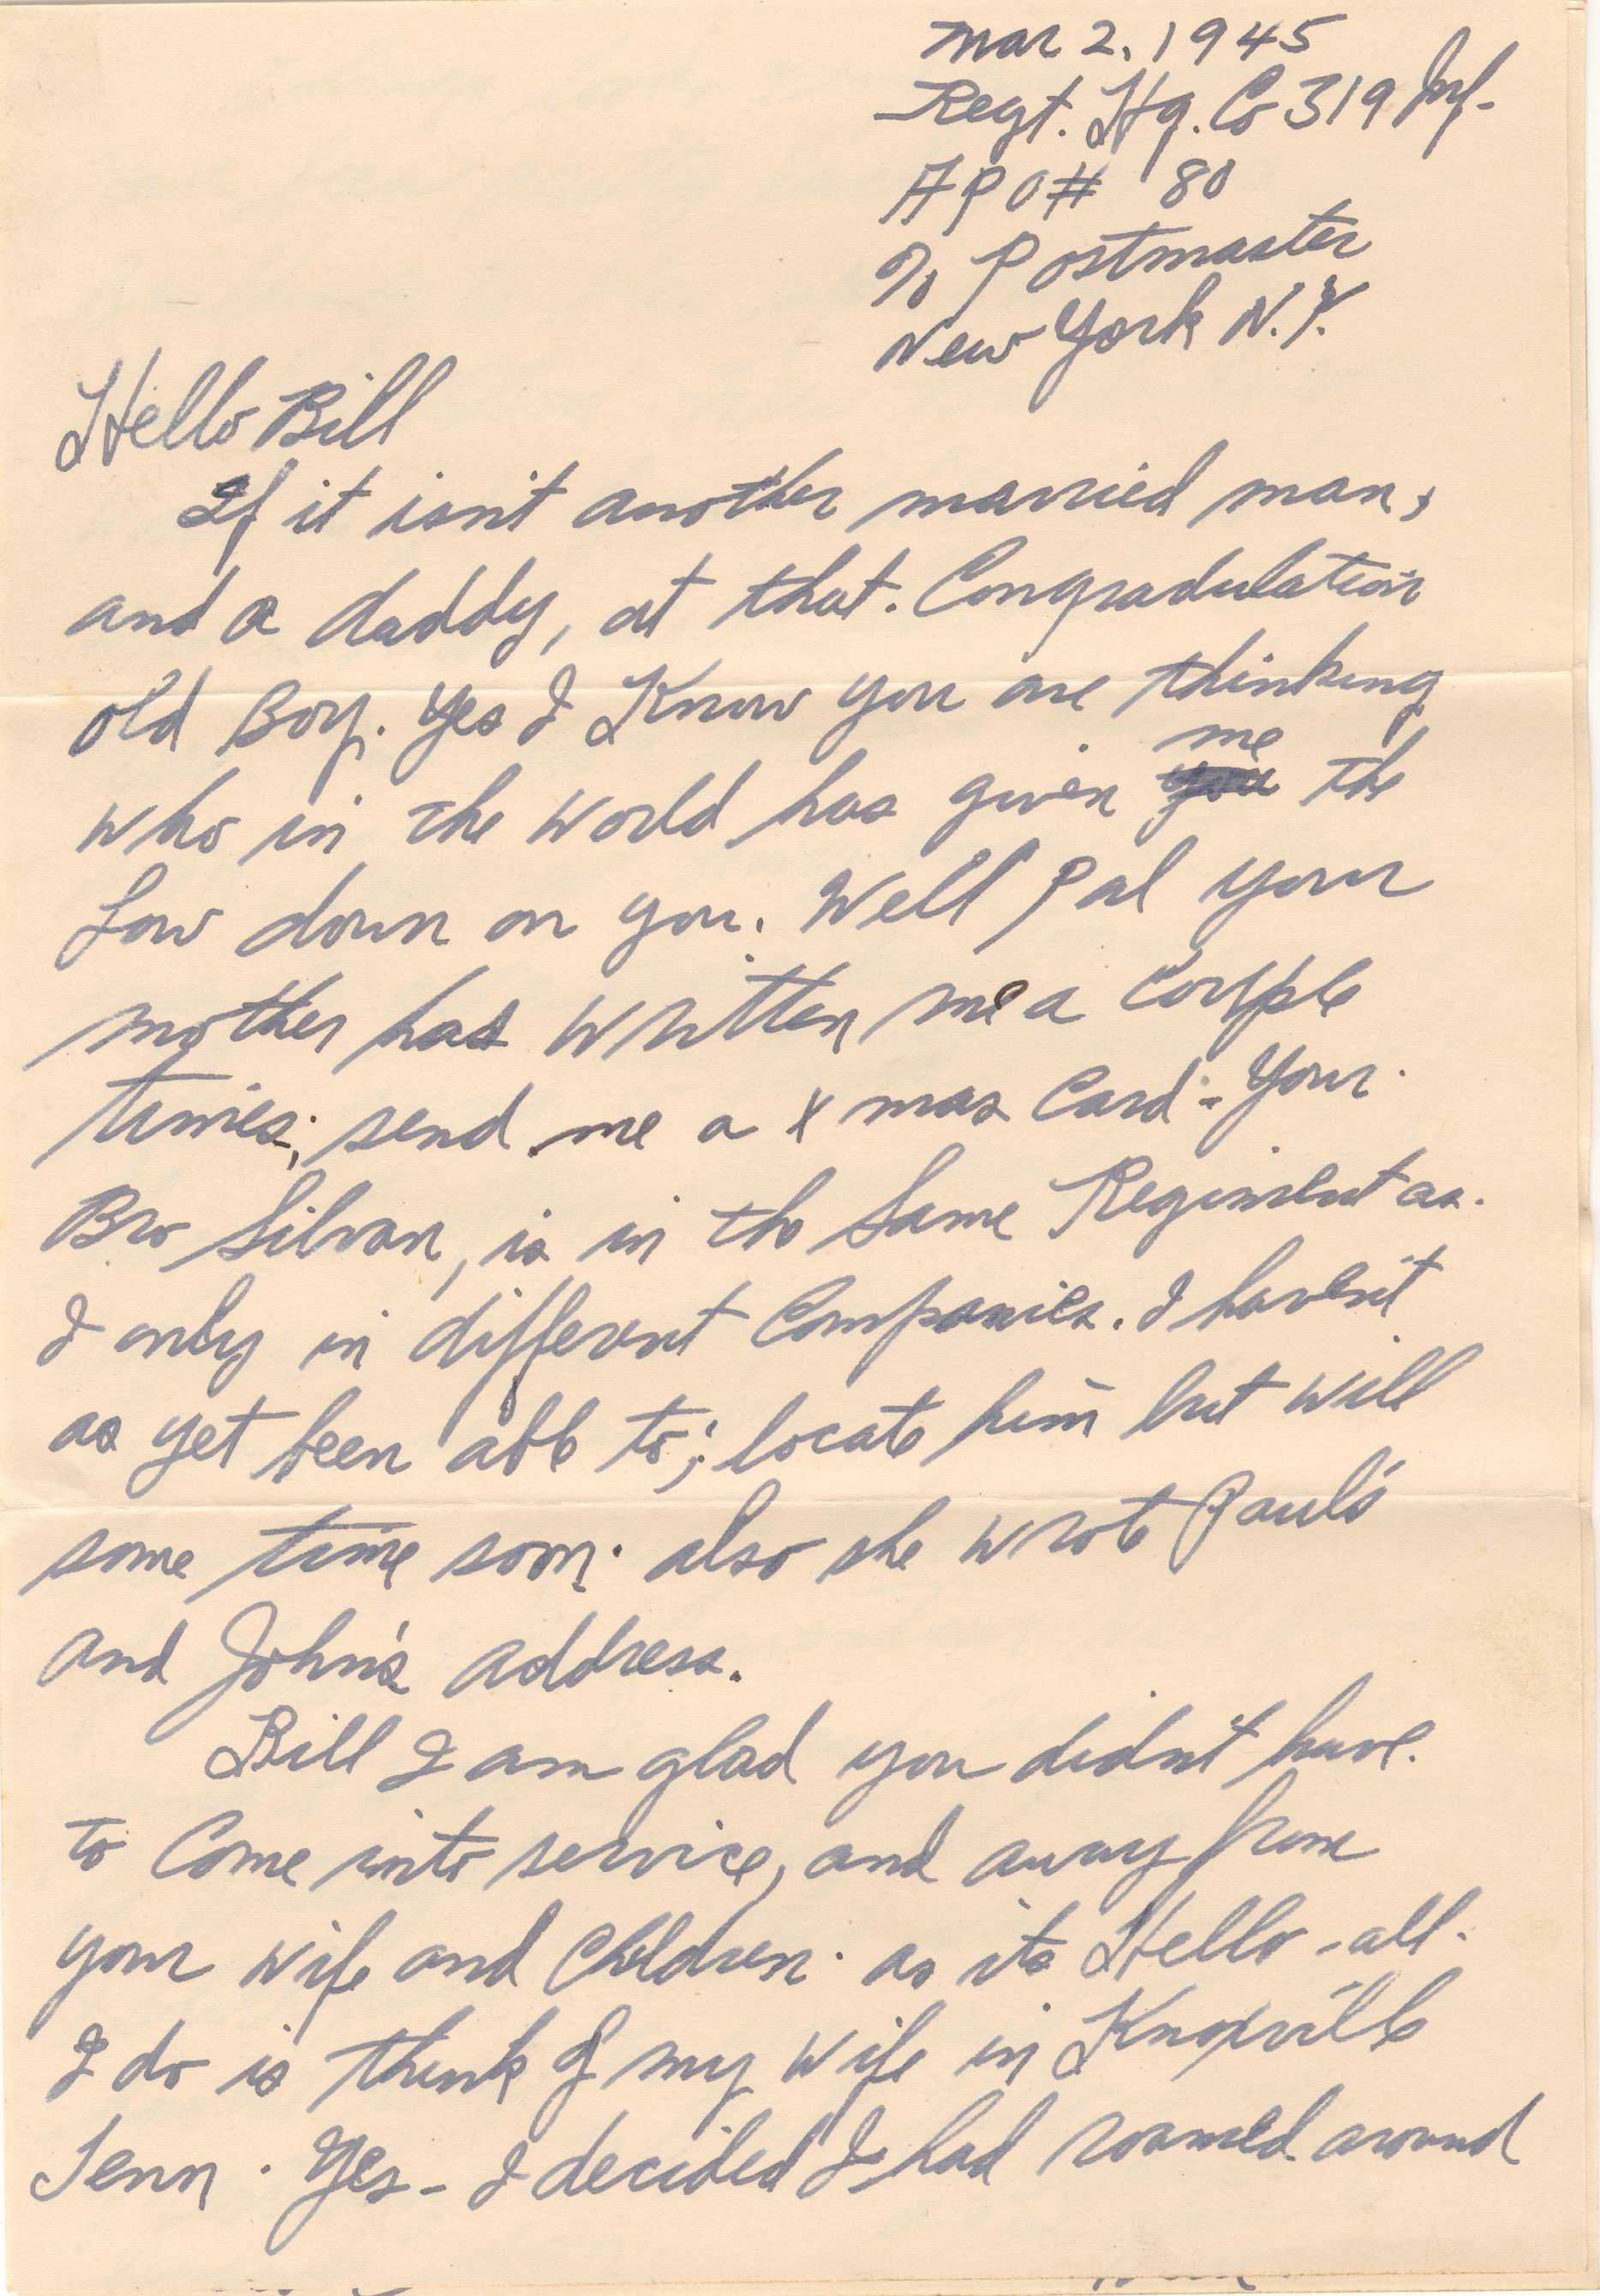 Mar 2, 1945
Regt. Hq. Co 319 Inf-
APO# 80
% Postmaster
New York N.Y.
Hello Bill
If it isn't another married man,
and a daddy, at that. Congradulation
old Boy. Yes I Know you are thinking
me
who in the world has given you the
Low down on you. Well Pal your
mother has written me a couple
times; send me a X mas Card - Your
Bro Silvan, is in the same Regiment as
I only in different Companies. I haven't
as yet been able to; locate him but will
some time soon. also she wrote Paul's
and John's address.
Bill I am glad you didn't have
to Come into service, and away from
your wife and Children. as its Hello - all
I do is think of my wife in Knoxville
Tenn. Yes - I decided I had roamed around